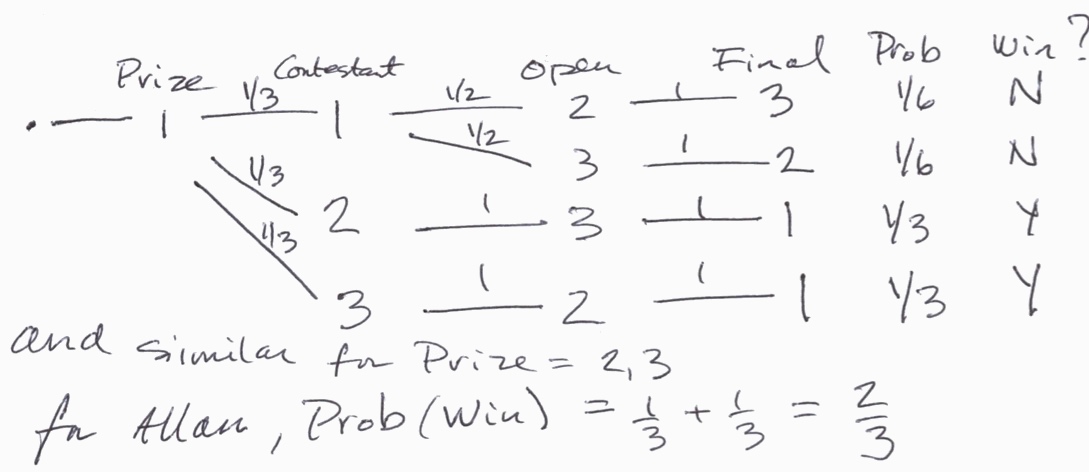 Prize Contestant Open Final Prob Win?
. 1 1/3 1 1/2 2 1 3 1/6 N
1/2 3 1 2 1/6 N
1/3 2 1 3 1 1 1/3 Y
1/3 3 1 2 1 1 1/3 Y
and similar for Prize = 2,3
for Allan, Prob(Win) = 1/3 + 1/3 = 2/3